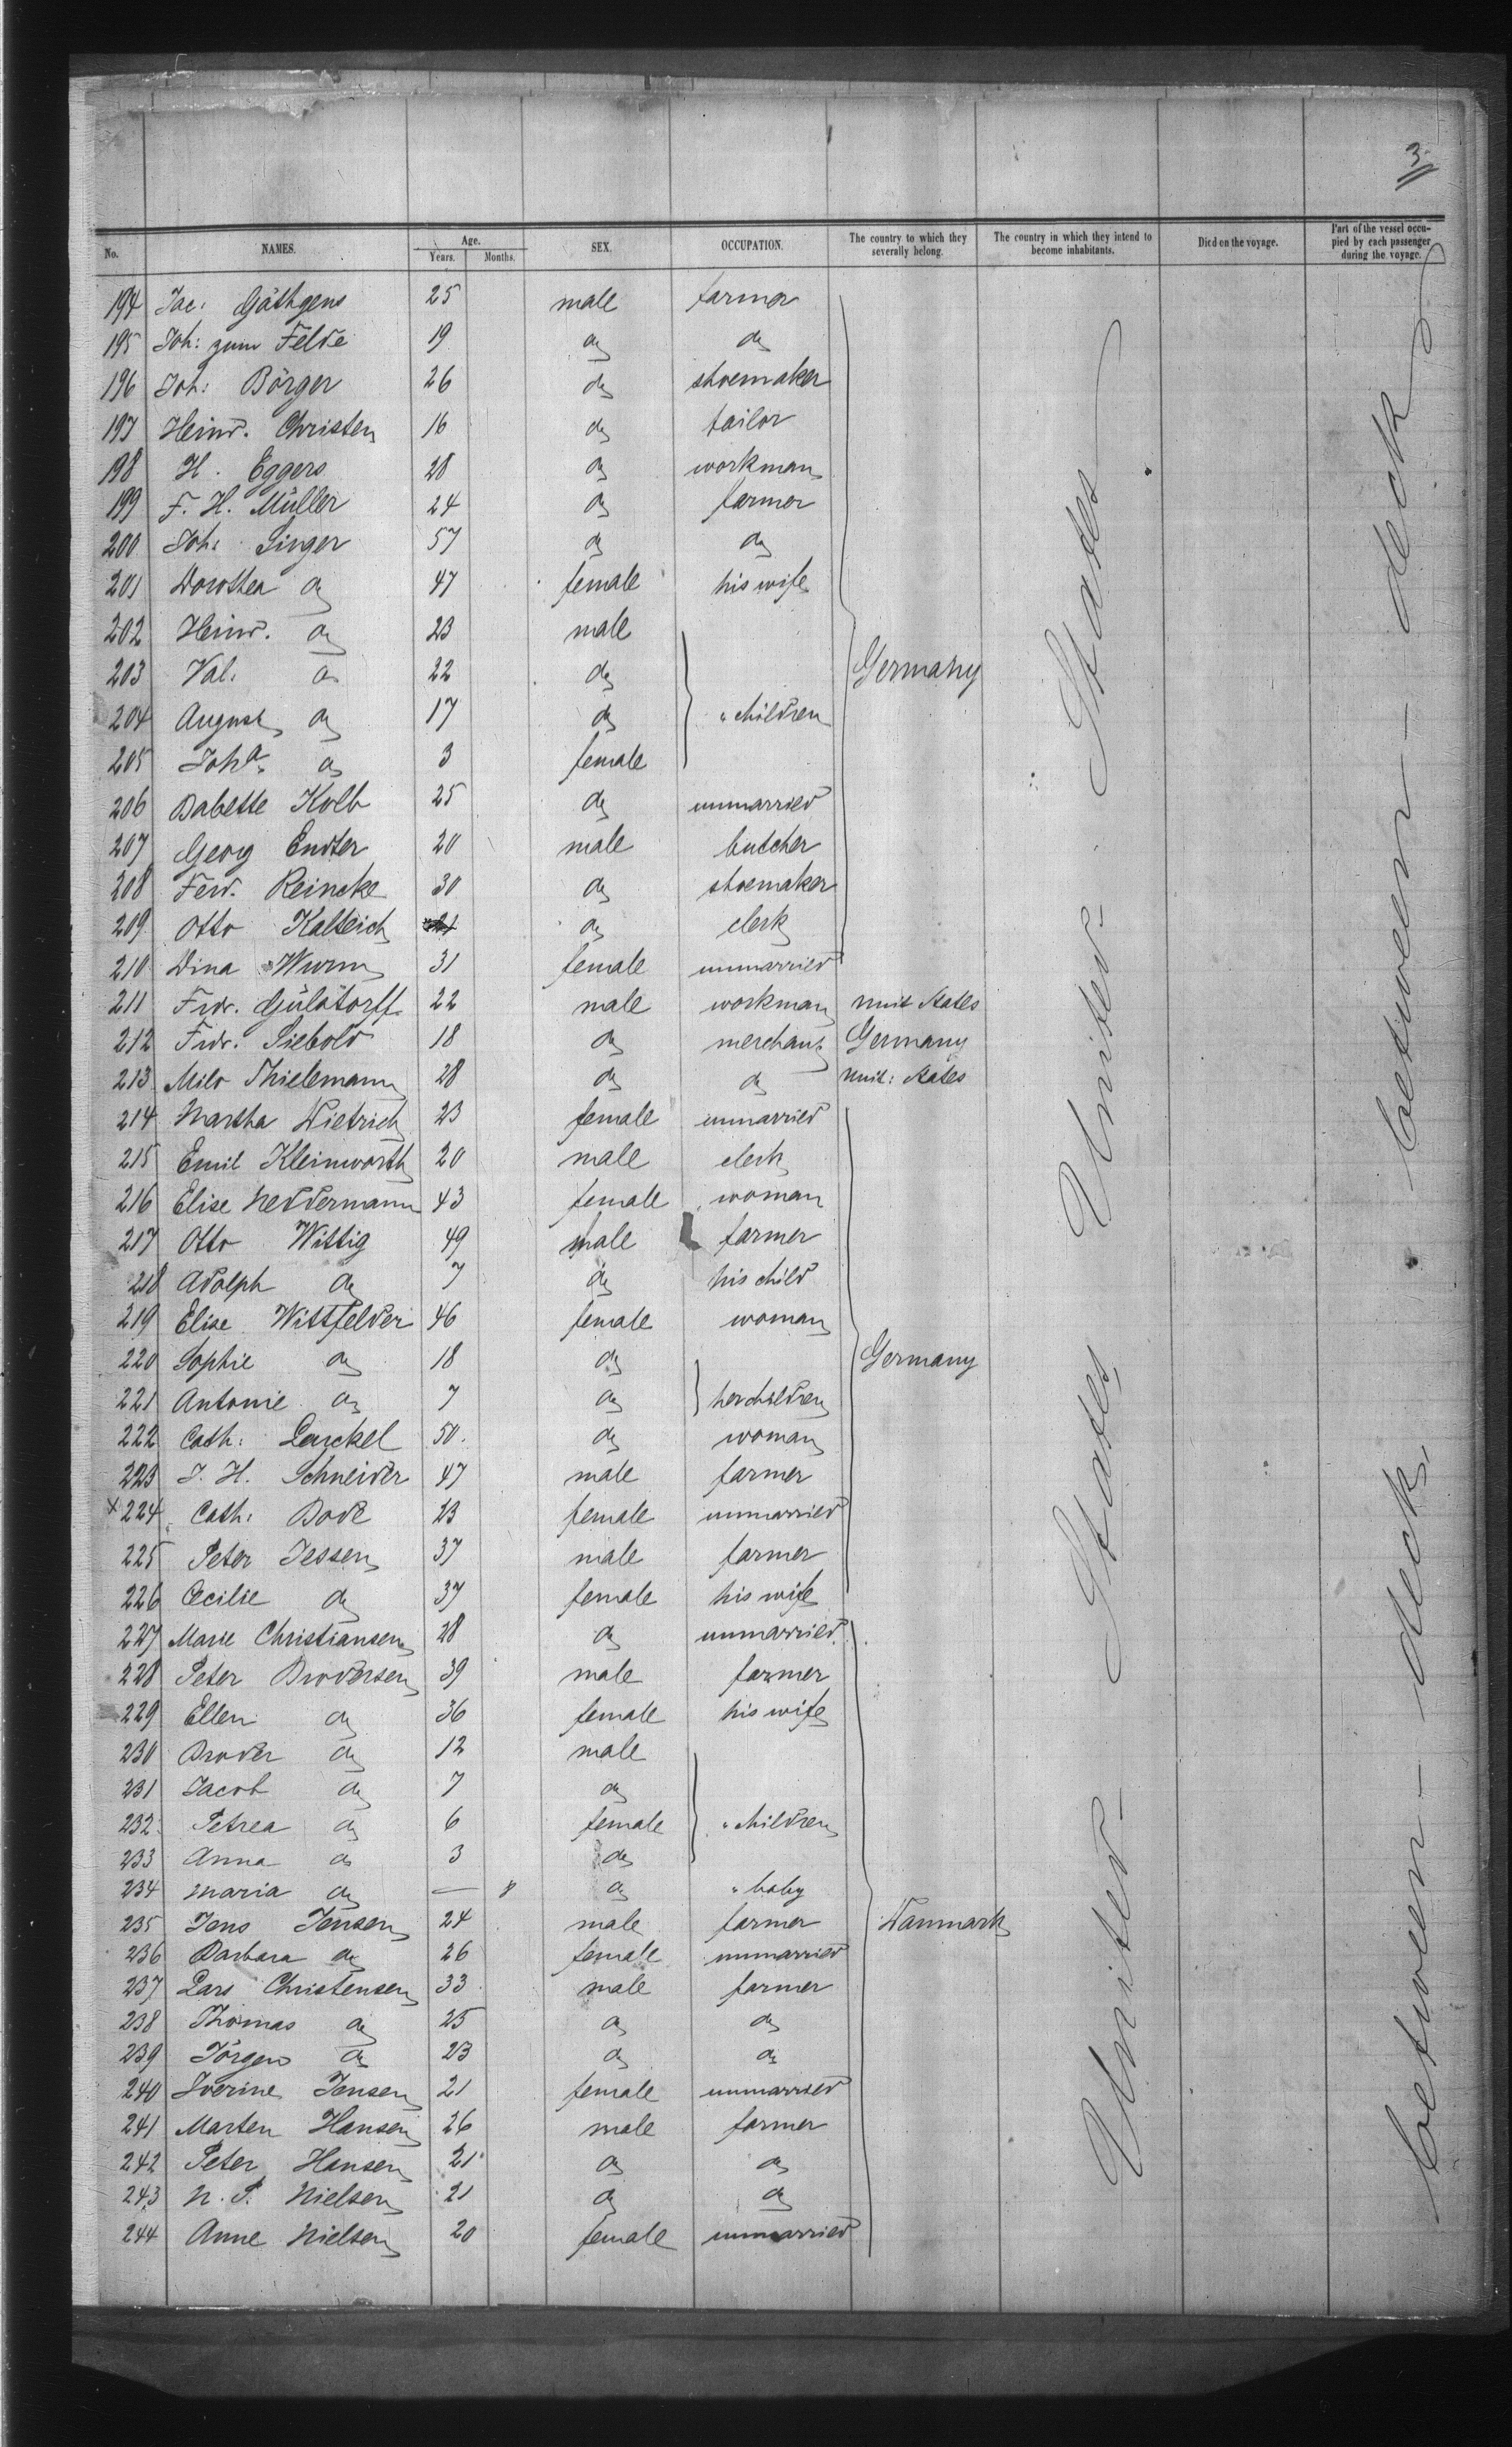 3.
No. NAMES. Age. Years. Months. SEX. OCCUPATION. The country to which they severally belong. The country in which they intend to become inhabitants. Died on the voyage. Part of the vessel occupied by each passenger during the voyage.
194 Jac: Göthgens 25 male farmer
195 Joh: zum Felde 19 do do
196 Joh: Börger 26 do shoemaker
197 Heinr. Christen 16 do tailor
198 H. Eggers 28 do workman
199 F. H. Müller 24 do farmer
200 Joh: Singer 57 do do
201 Dorothea do 47 female his wife
202 Heinr. do 23 male
203 Val. do 22 do Germany
204 August do 17 do " children
205 Joha. do 3 female
206 Babette Kolb 25 do unmarried
207 Georg Endter 20 male butcher
208 Ferd. Reincke 30 do shoemaker
209 Otto Kalteich do clerk
210 Dina Wurm 31 female unmarried
211 Frdr. Gülstorff 22 male workman Unit States
212 Frdr. Siebold 18 do merchant Germany
213 Milo Thielemann 28 do do Unit: States
214 Martha Dietrich 23 female unmarried
215 Emil Kleinworth 20 male clerk
216 Elise Neddermann 43 female woman
217 Otto Wittig 49 male farmer
218 Adolph do 7 do his child
219 Elise Wittfelder 46 female woman
220 Sophie do 18 do Germany
221 Antonie do 7 do her children
222 Cath: Lenckel 50. do woman
223 J. H. Schneider 47 male farmer
x 224 Cath: Bode 23 female unmarried
225 Peter Jessen 37 male farmer
226 Cecilie do 37 female his wife
227 Marie Christiansen 28 do unmarried
228 Peter Brodersen 39 male farmer
229 Ellen do 36 female his wife
230 Broder do 12 male
231 Jacob do 7 do
232 Petrea do 6 female " children
233 Anna do 3 do
234 Maria do — 8 do " baby
235 Jens Jensen 24 male farmer Danmark
236 Barbara do 26 female unmarried
237 Lars Christensen 33 male farmer
238 Thomas do 25 do do
239 Jörgen do 23 do do
240 Iverine Jensen 21 female unmarried
241 Marten Hansen 26 male farmer
242 Peter Hansen 21 do do
243 N. P. Nielsen 21 do do
244 Anne Nielsen 20 female unmarried
United - States United - States
between - deck, between - deck